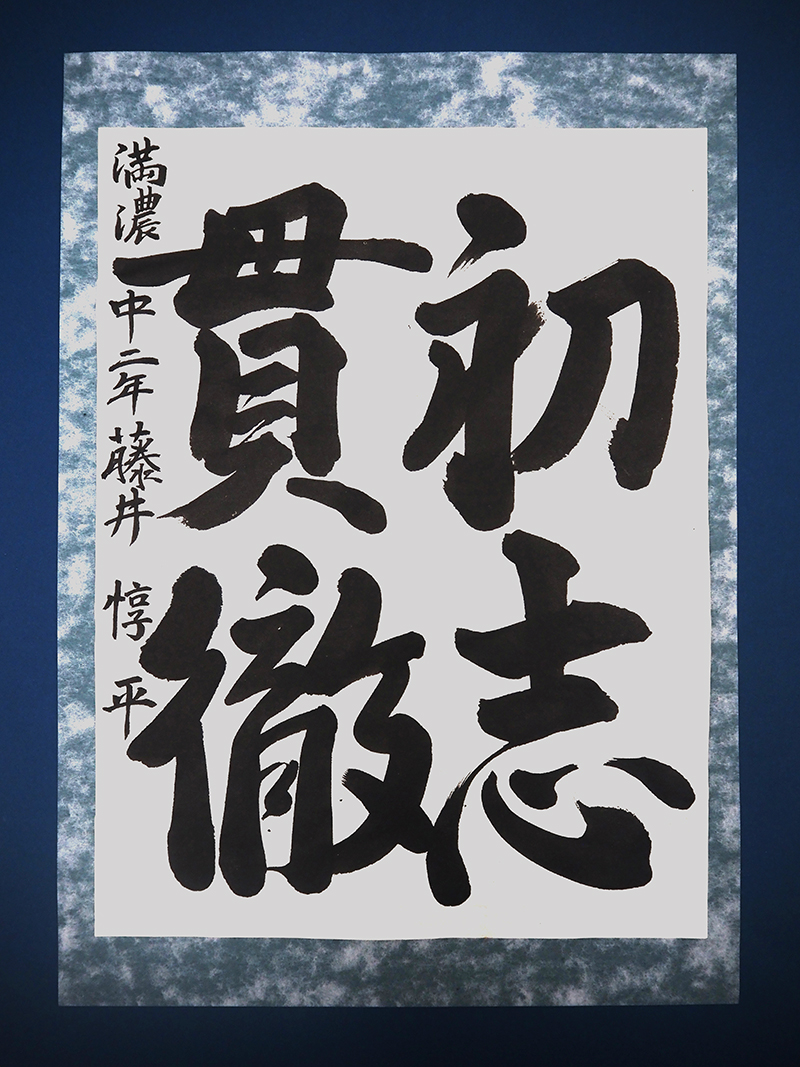 初志
貫徹
満濃中二年 藤井 惇平